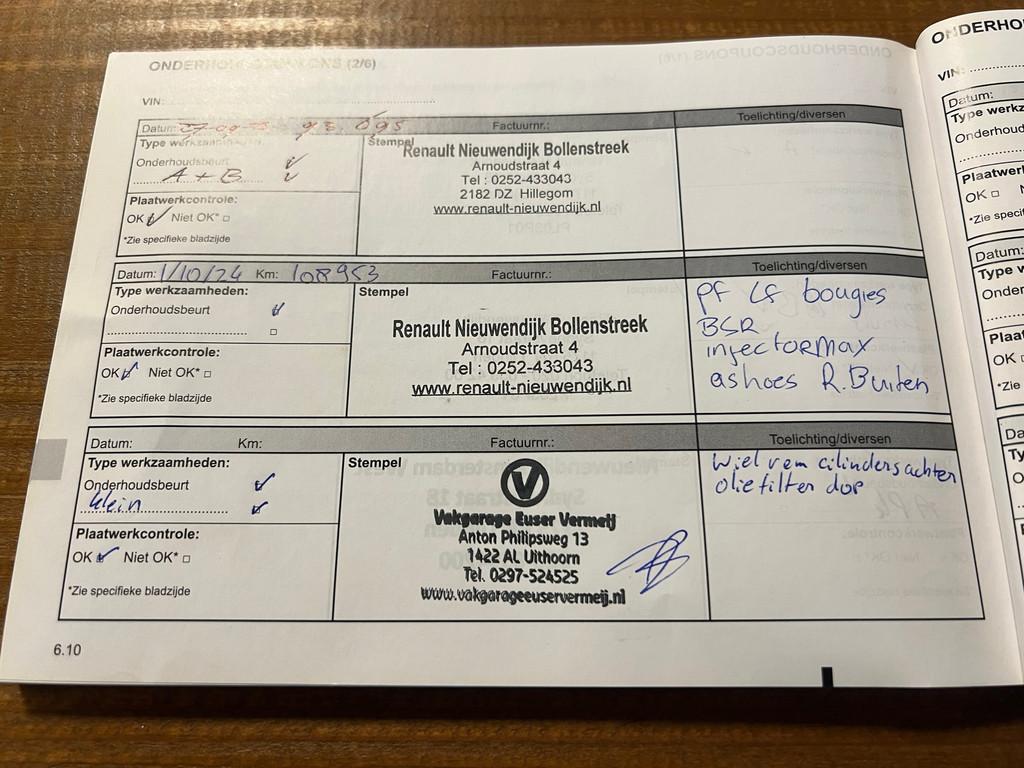 ONDERHOUDSCOUPONS (2/6)
VIN:
Datum: 27-09- 93.095 Factuurnr.: Toelichting/diversen
Type werkzaamheden:
Onderhoudsbeurt
A + B
Plaatwerkcontrole:
OK Niet OK*
*Zie specifieke bladzijde
Stempel
Renault Nieuwendijk Bollenstreek
Arnoudstraat 4
Tel : 0252-433043
2182 DZ Hillegom
www.renault-nieuwendijk.nl
Datum: 1/10/24 Km: 108953 Factuurnr.: Toelichting/diversen
Type werkzaamheden:
Onderhoudsbeurt
Plaatwerkcontrole:
OK Niet OK*
*Zie specifieke bladzijde
Stempel
Renault Nieuwendijk Bollenstreek
Arnoudstraat 4
Tel : 0252-433043
www.renault-nieuwendijk.nl
PF LF bougies
BSR
injectormax
ashoes R.Buiten
Datum: Km: Factuurnr.: Toelichting/diversen
Type werkzaamheden:
Onderhoudsbeurt
klein
Plaatwerkcontrole:
OK Niet OK*
*Zie specifieke bladzijde
Stempel
V
Vakgarage Euser Vermeij
Anton Philipsweg 13
1422 AL Uithoorn
Tel. 0297-524525
www.vakgarageeuservermeij.nl
Wiel rem cilinders achter
oliefilter dop
6.10
ONDERHO
VIN:
Datum:
Type werkz
Onderhoud
Plaatwerk
OK
*Zie specif
Datum:
Type w
Onder
Plaa
OK
*Zie
Da
Ty
O
P
O